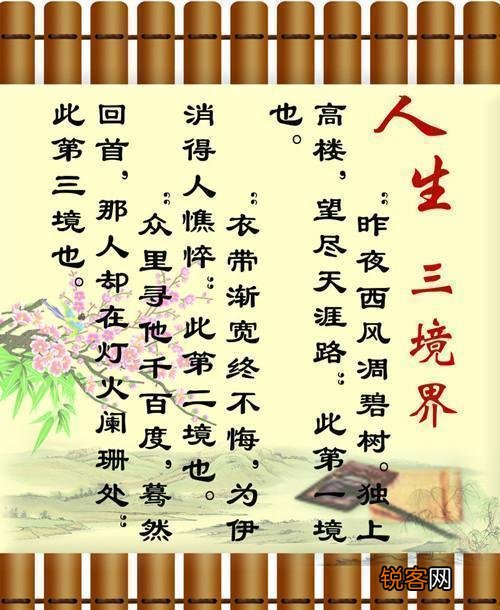 人生 三境界
“昨夜西风凋碧树。独上
高楼，望尽天涯路”此第一境
也。
“衣带渐宽终不悔，为伊
消得人憔悴”此第二境也。
“众里寻他千百度，蓦然
回首，那人却在灯火阑珊处”
此第三境也。
锐客网